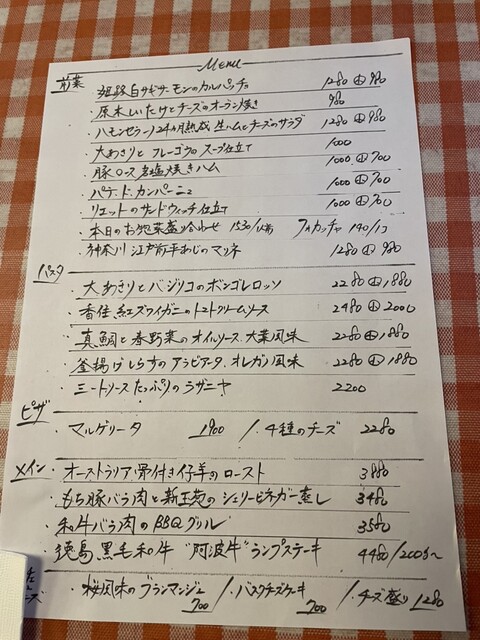 Menu
前菜
姫路白サギサーモンのカルパッチョ 1280 小 980
・原木しいたけとチーズのオーブン焼き 980
・ハモンセラーノ24ヵ月熟成 生ハムとチーズのサラダ 1280 小 980
・大あさりと フレーゴラの スープ仕立て 1000
・豚ロース 岩塩焼きハム 1000 小 700
・パテ・ド・カンパーニュ 1000 小 700
・リエットのサンドウィッチ仕立て 1000 小 700
・本日のお惣菜盛り合わせ 1530/1人前 フォカッチャ 140/1コ
・神奈川 江戸前平あじのマリネ 1280 小 980
パスタ
・大あさりとバジリコのボンゴレロッソ 2280 小 1880
・香住 紅ズワイガニのトマトクリームソース 2480 小 2000
・真鯛と春野菜のオイルソース、大葉風味 2280 小 1880
・釜揚げしらすのアラビアータ、オレガノ風味 2280 小 1880
・ミートソースたっぷりのラザニヤ 2200
ピザ
・マルゲリータ 1900 /・4種のチーズ 2280
メイン
・オーストラリア骨付き仔羊のロースト 3880
・もち豚バラ肉と新玉葱のシェリービネガー蒸し 3480
・和牛バラ肉のBBQグリル 3580
・徳島 黒毛和牛 "阿波牛" ランプステーキ 4480/200g〜
・桜風味のブランマンジェ 700 /・バスクチーズケーキ 700 /・チーズ盛り 1280